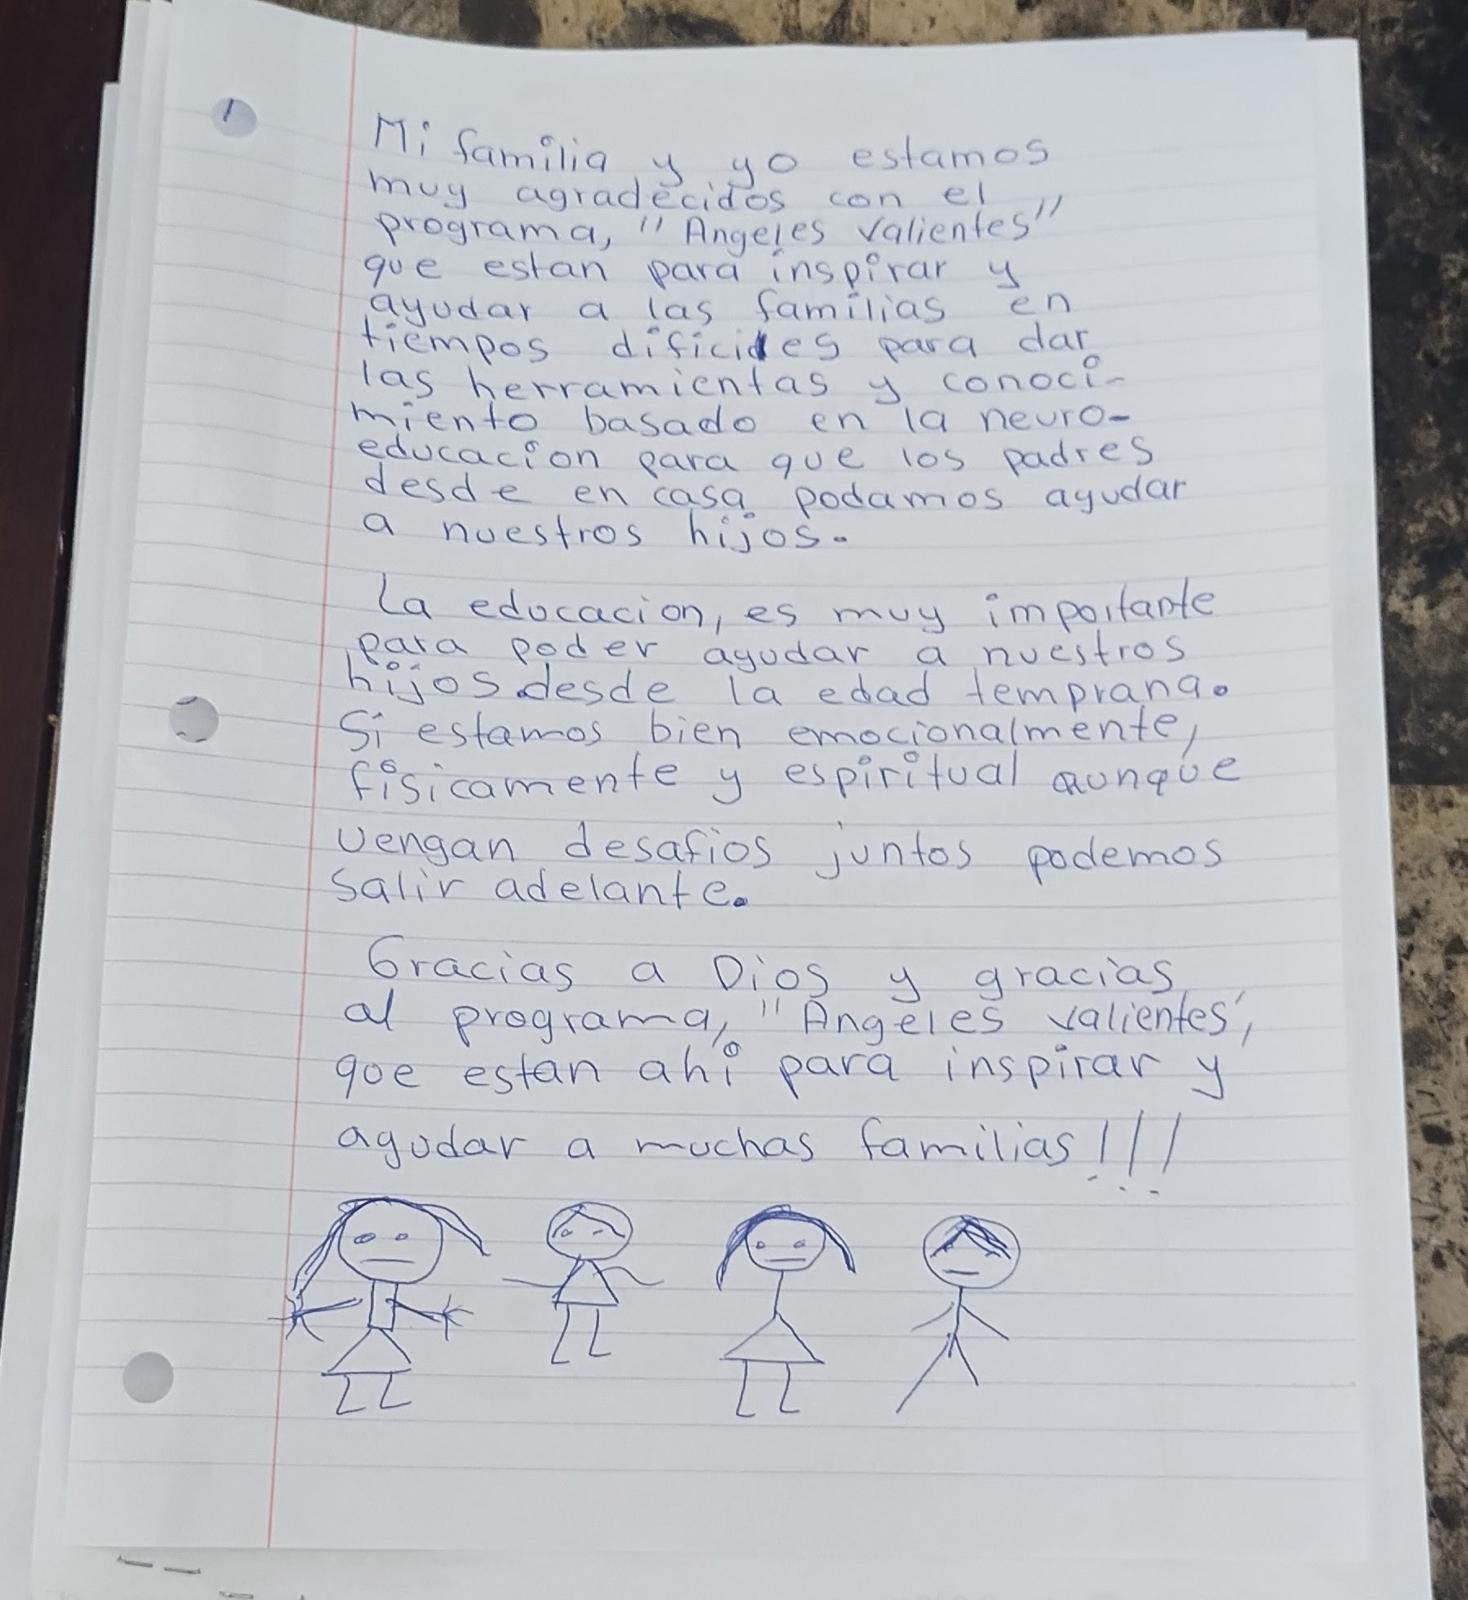 Mi familia y yo estamos
muy agradecidos con el
programa, "Angeles Valientes"
que estan para inspirar y
ayudar a las familias en
tiempos dificiles para dar
las herramientas y conoci-
miento basado en la neuro-
educacion para que los padres
desde en casa podamos ayudar
a nuestros hijos.
La educacion, es muy importante
para poder ayudar a nuestros
hijos desde la edad temprana.
Si estamos bien emocionalmente,
fisicamente y espiritual aunque
vengan desafios juntos podemos
salir adelante.
Gracias a Dios y gracias
al programa, "Angeles Valientes",
que estan ahi para inspirar y
ayudar a muchas familias!!!